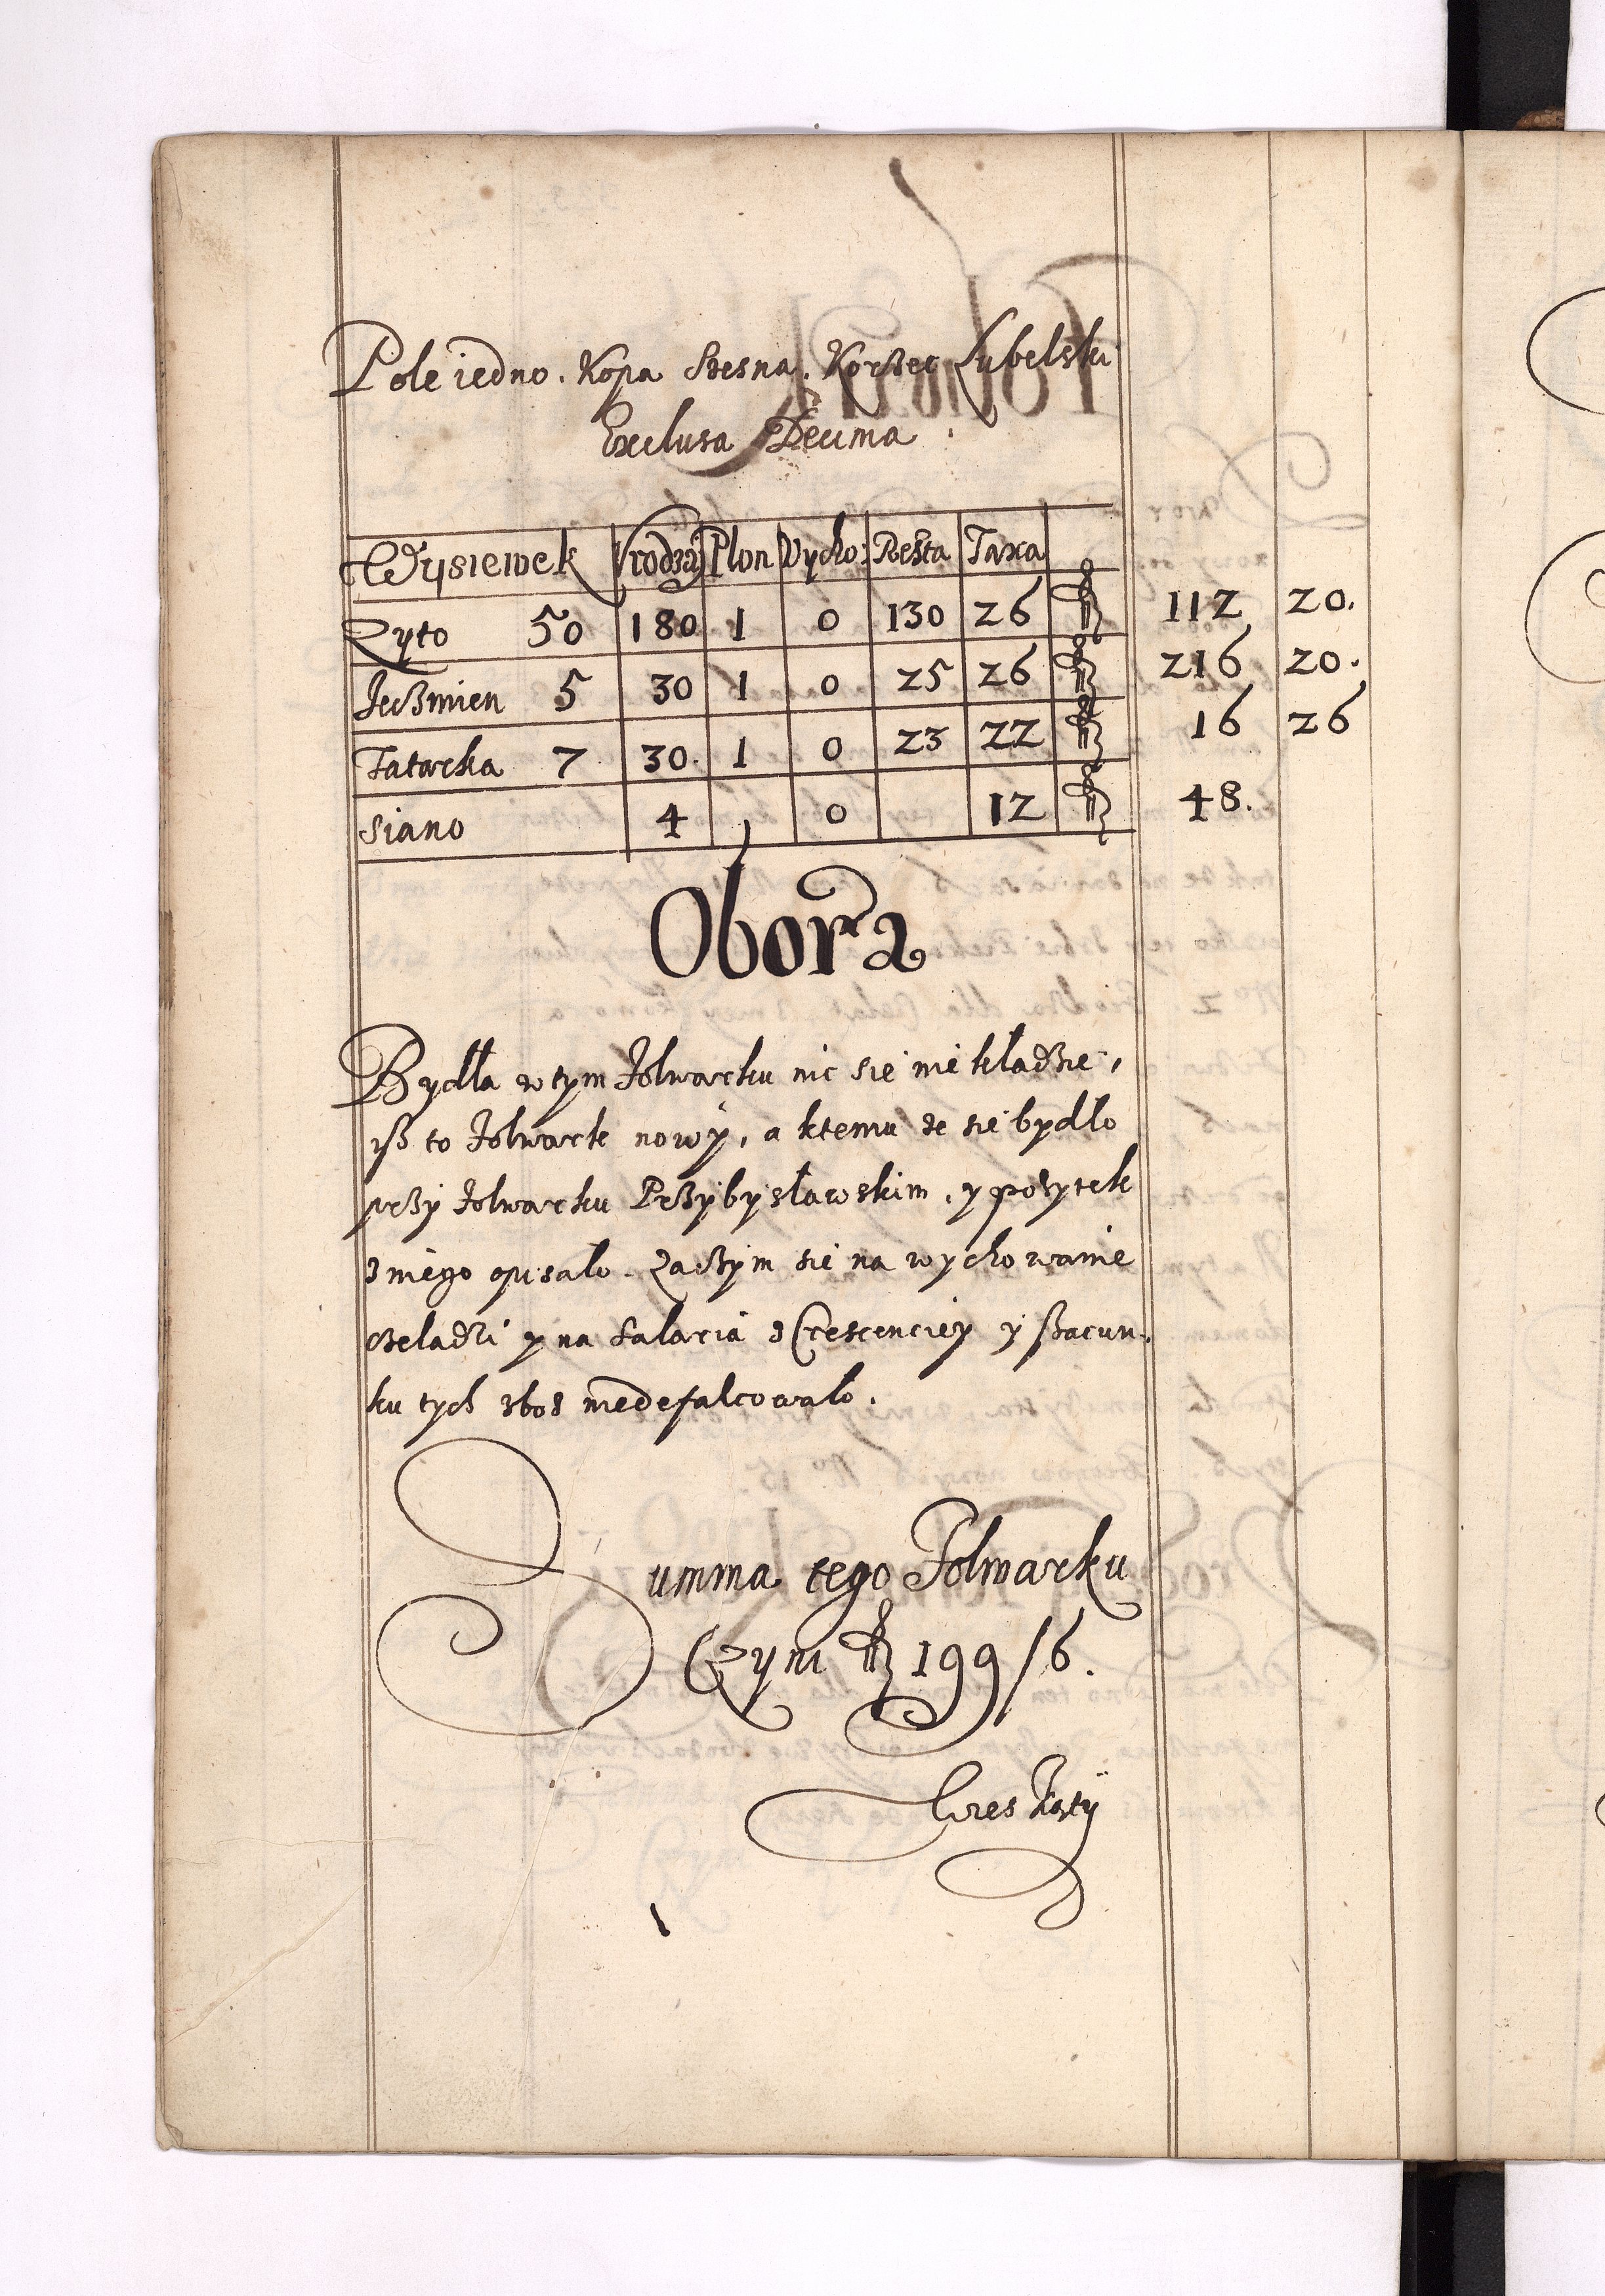 Pole iedno. Kopa Stesna. Korzec Lubelski
Exclusa Decima.
Wysiewek Vrodzai Plon Vycho: Resta Taxa
Zyto 50 180 1 0 130 26 fl 112 20.
Jeczmien 5 30 1 0 25 26 fl 216 20.
Tatarka 7 30. 1 0 23 22 fl 16 26
Siano 4 0 12 fl 48.
Obora
Bydla w tym folwarku nic się nie kladzie,
isz to folwark nowy, a ktemu ze się bydło
przy folwarku Przybysławskim, y pozytek
z niego opisalo. Zaczym się na wychowanie
czeladzi y na Salaria z Crescenciey y szacun-
ku tych zboz niedefalcowalo.
Summa tego Folwarku
Czyni fl 199/6.